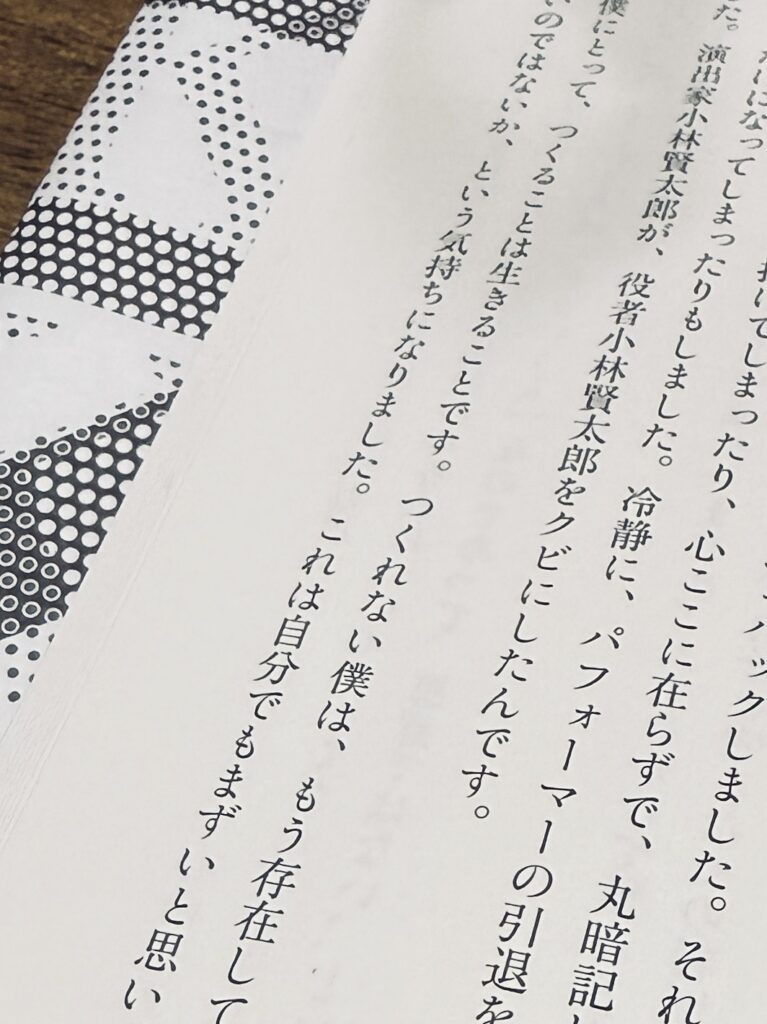 バックしました。それ
いてしまったり、心ここに在らずで、丸暗記
になってしまったりもしました。冷静に、パフォーマーの引退を
た。演出家小林賢太郎が、役者小林賢太郎をクビにしたんです。
僕にとって、つくることは生きることです。つくれない僕は、もう存在して
いのではないか、という気持ちになりました。これは自分でもまずいと思い